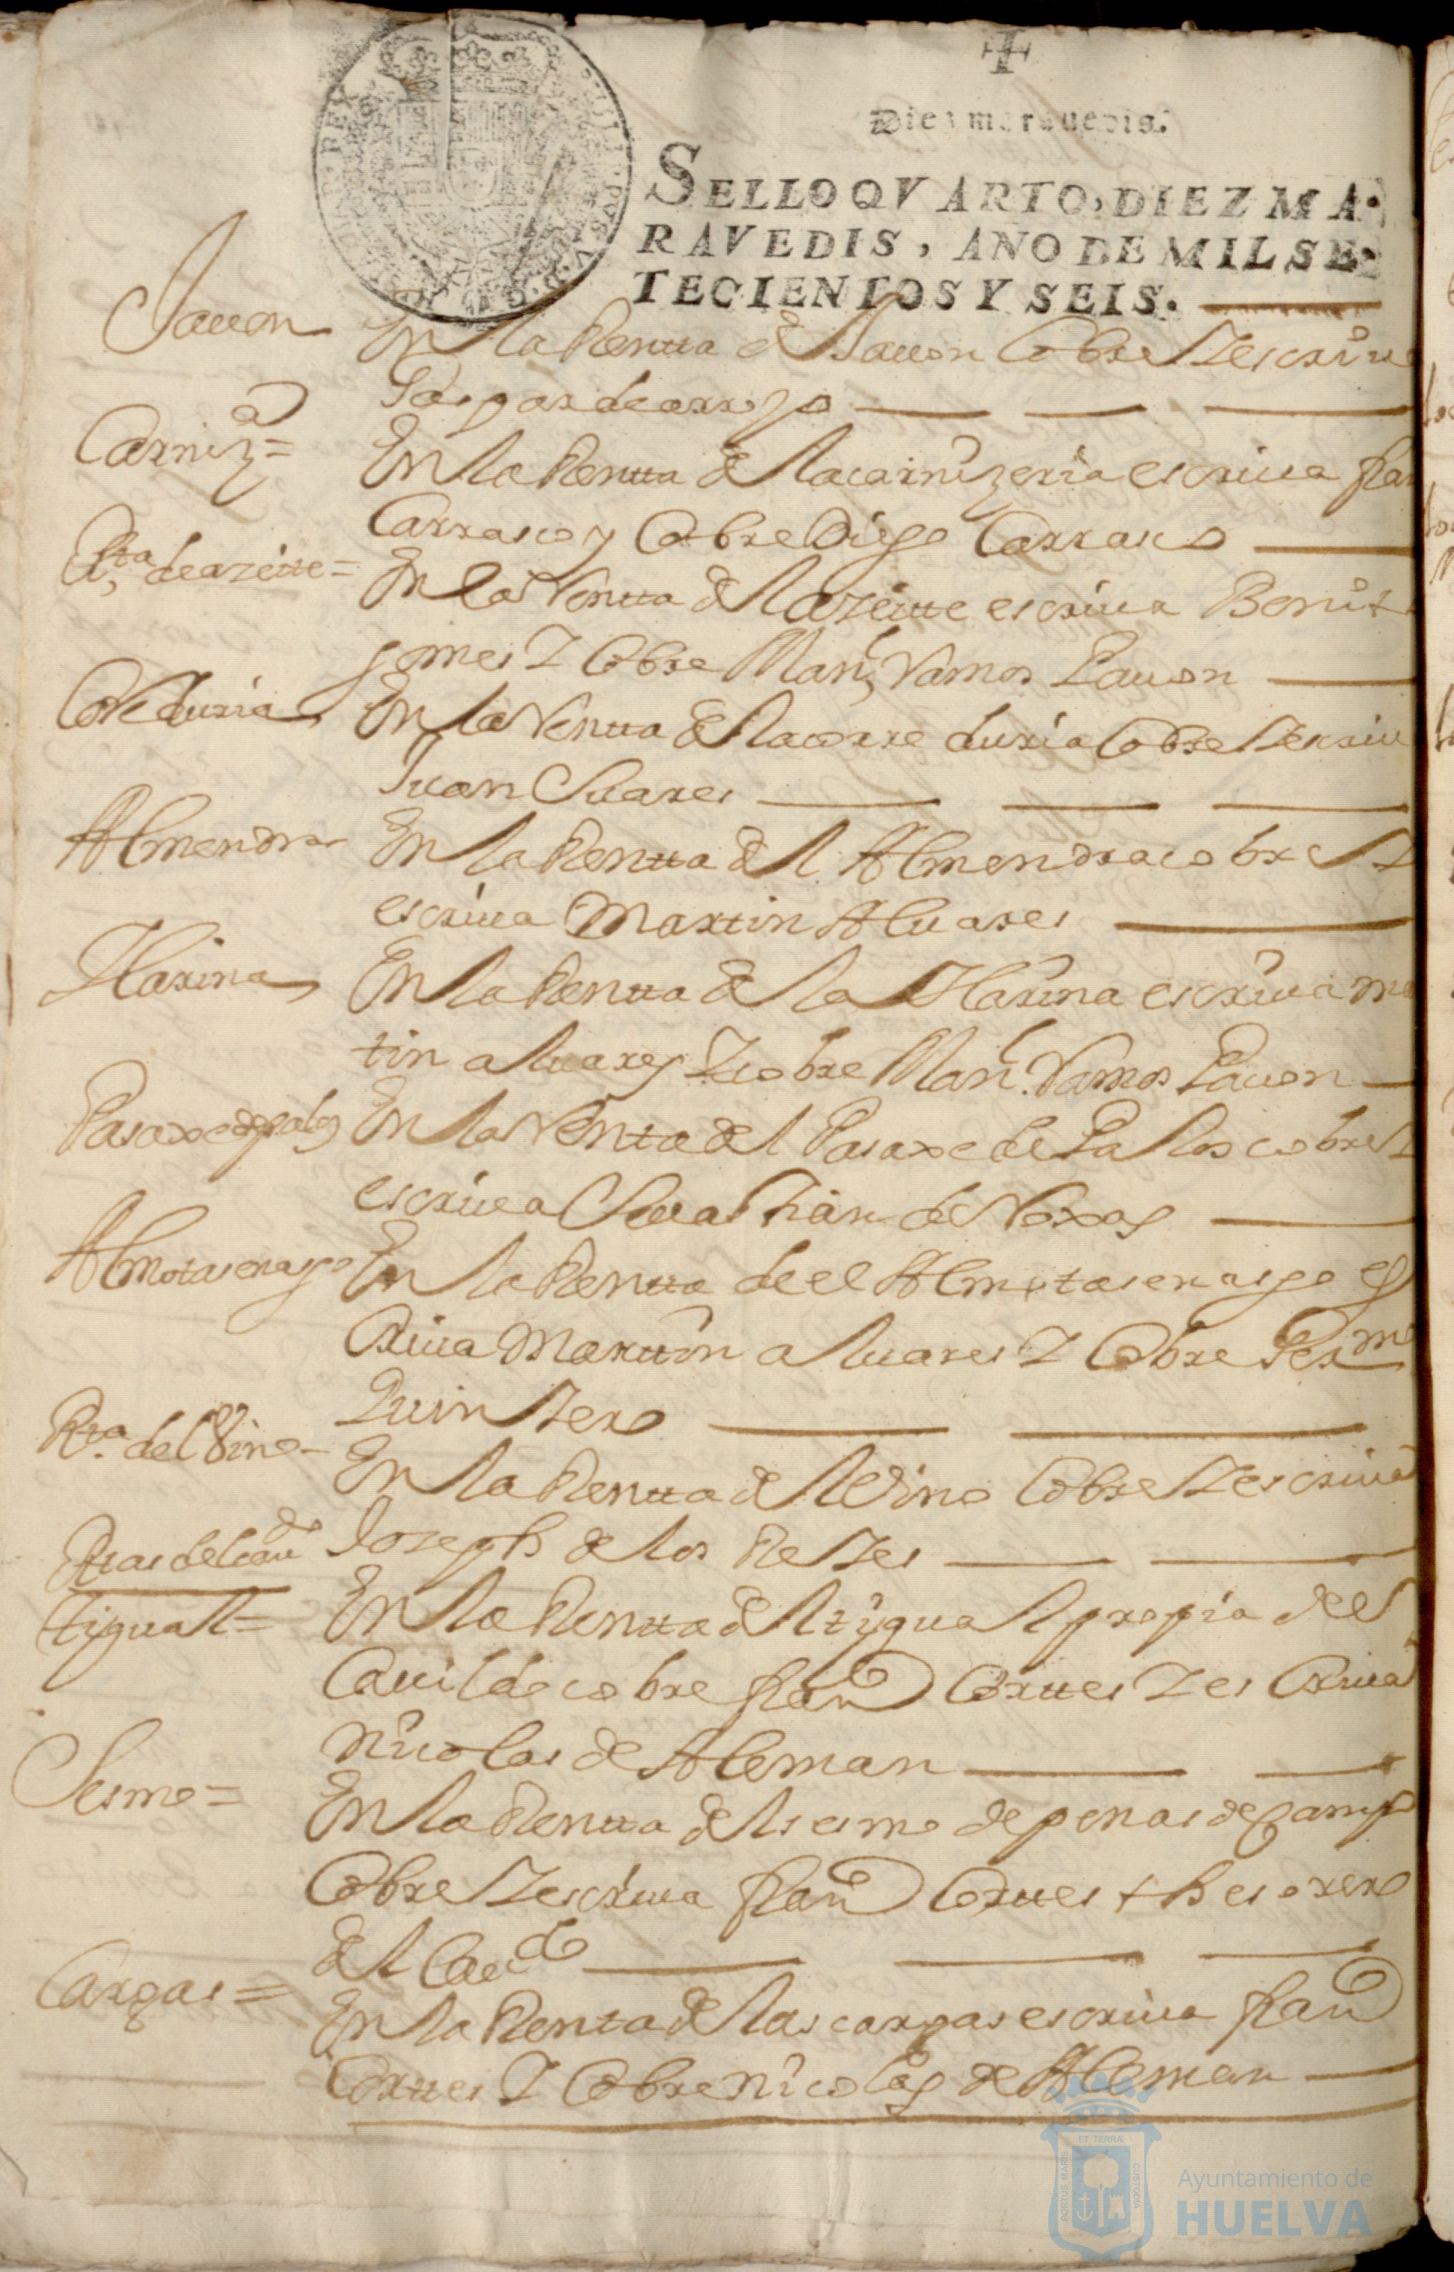 Diez maravedis.
SELLO QVARTO, DIEZ MA-
RAVEDIS, ANO DE MIL SE-
TECIENTOS Y SEIS.
Jauon
En la Rentta de Jauon Cobre Y escriua
Gaspar de
Carniza=
En la Rentta de la carnizeria escriua fran
Carrasco y Cobre Diego Carrasco
Rta de azeitte=
En la Rentta del azeitte escriua Benit
gomes Y Cobre Manl Ramos Pauon
Correduria
En la Rentta de la corre duria Cobre Y escriu
Juan Suares
Almendra
En la Rentta del Almendra cobre Y
escriua Martin Aluares
Harina
En la Rentta de la Harina escriua Mar
tin aluares Y cobre Manl Ramos Pauon
Pasaxe de palos
En la Renta del Pasaxe de Palos cobre Y
escriua Seuastian de Roxas
Almotasenasgo
En la Rentta de el Almotasenasgo es
Criua Marttin aluares Y Cobre Germo
Quintero
Rta del Vino
En la Rentta del Vino Cobre Y escriua
Joseph de los Reyes
Rtas del Caudo
tigual=
En la Rentta del tigual propia del
Cauildo cobre franco Corttes Y es Criua
Nicolas de Aleman
Sesmo=
En la Rentta del sesmo de penas de Campo
Cobre Y escriua franco Corttes thesorero
del Caudo
Cargas=
En la Renta de las cargas escriua franco
Corttes Y Cobre Nicolas de Aleman
PORTUS MARIS
ET TERRÆ
CUSTODIA
Ayuntamiento de
HUELVA